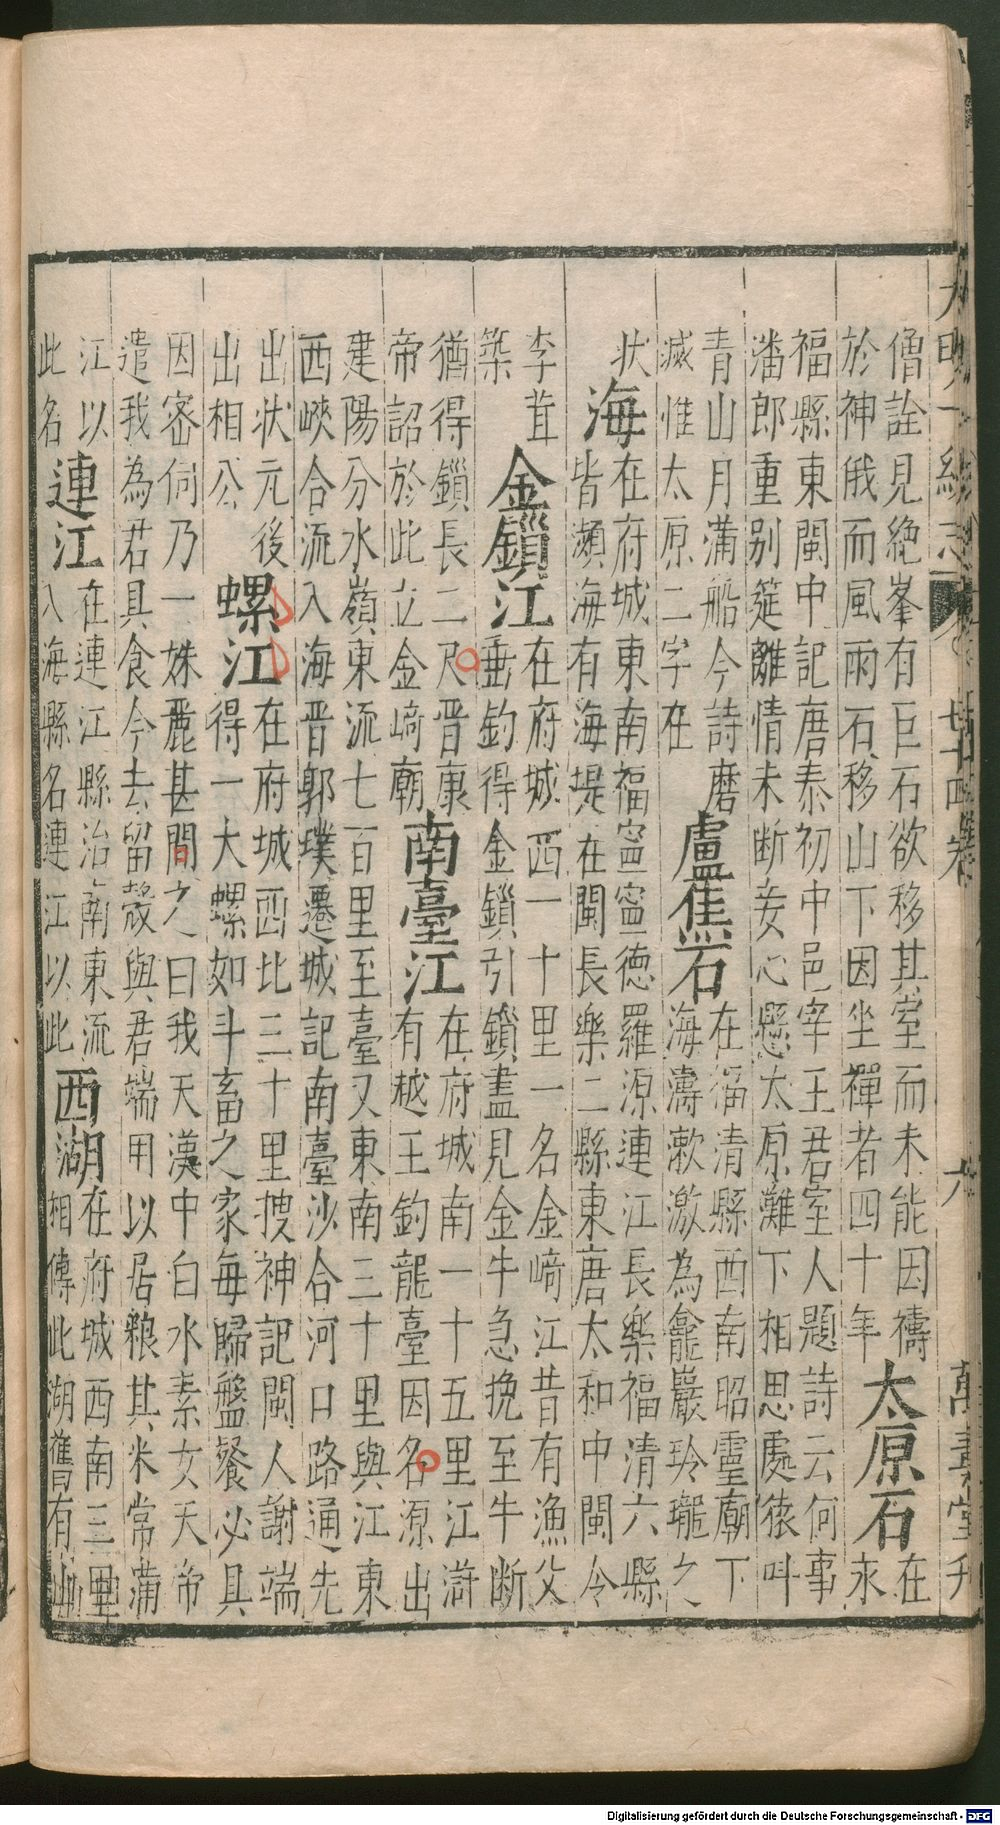 僧詮見絶峯有巨石欲移其室而未能因禱
於神俄而風雨石移山下因坐禪者四十年
太原石
在
永
福縣東閩中記唐泰初中邑宰王君室人題詩云何事
潘郎重别筵離情未断妾心懸太原灘下相思處猿叫
青山月蒲船今詩磨
滅惟太原二字在
盧蕉石
在福清縣西南昭靈廟下
海濤漱激為龕巖玲瓏之
状
海
在府城東南福寧寧德羅源連江長樂福清六縣
皆瀕海有海堤在閩長樂二縣東唐太和中閩令
李茸
築
金鎻江
在府城西一十里一名金崎江昔有漁父
垂釣得金鎻引鎻盡見金牛急挽至牛断
猶得鎻長二尺晋康
帝詔於此立金崎廟
南臺江
在府城南一十五里江滸
有越王釣龍臺因名源出
建陽分水嶺東流七百里至臺又東南三十里與江東
西峽合流入海晋郭璞遷城記南臺沙合河口路通先
出状元後
出相公
螺江
在府城西北三十里搜神記閩人謝端
得一大螺如斗畜之家每歸盤餐必具
因密伺乃一姝麗甚問之曰我天漢中白水素女天帝
遣我為君具食今去留殼與君端用以居粮其米常蒲
江以
此名
連江
在連江縣治南東流
入海縣名連江以此
西湖
在府城西南三里
相傳此湖舊有
大明一統志
七十四卷
六
萬壽堂刋
Digitalisierung gefördert durch die Deutsche Forschungsgemeinschaft - DFG